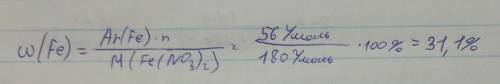 ω(Fe) = Ar(Fe)·n / M(Fe(NO₃)₂) = 56 г/моль / 180 г/моль · 100% = 31,1%